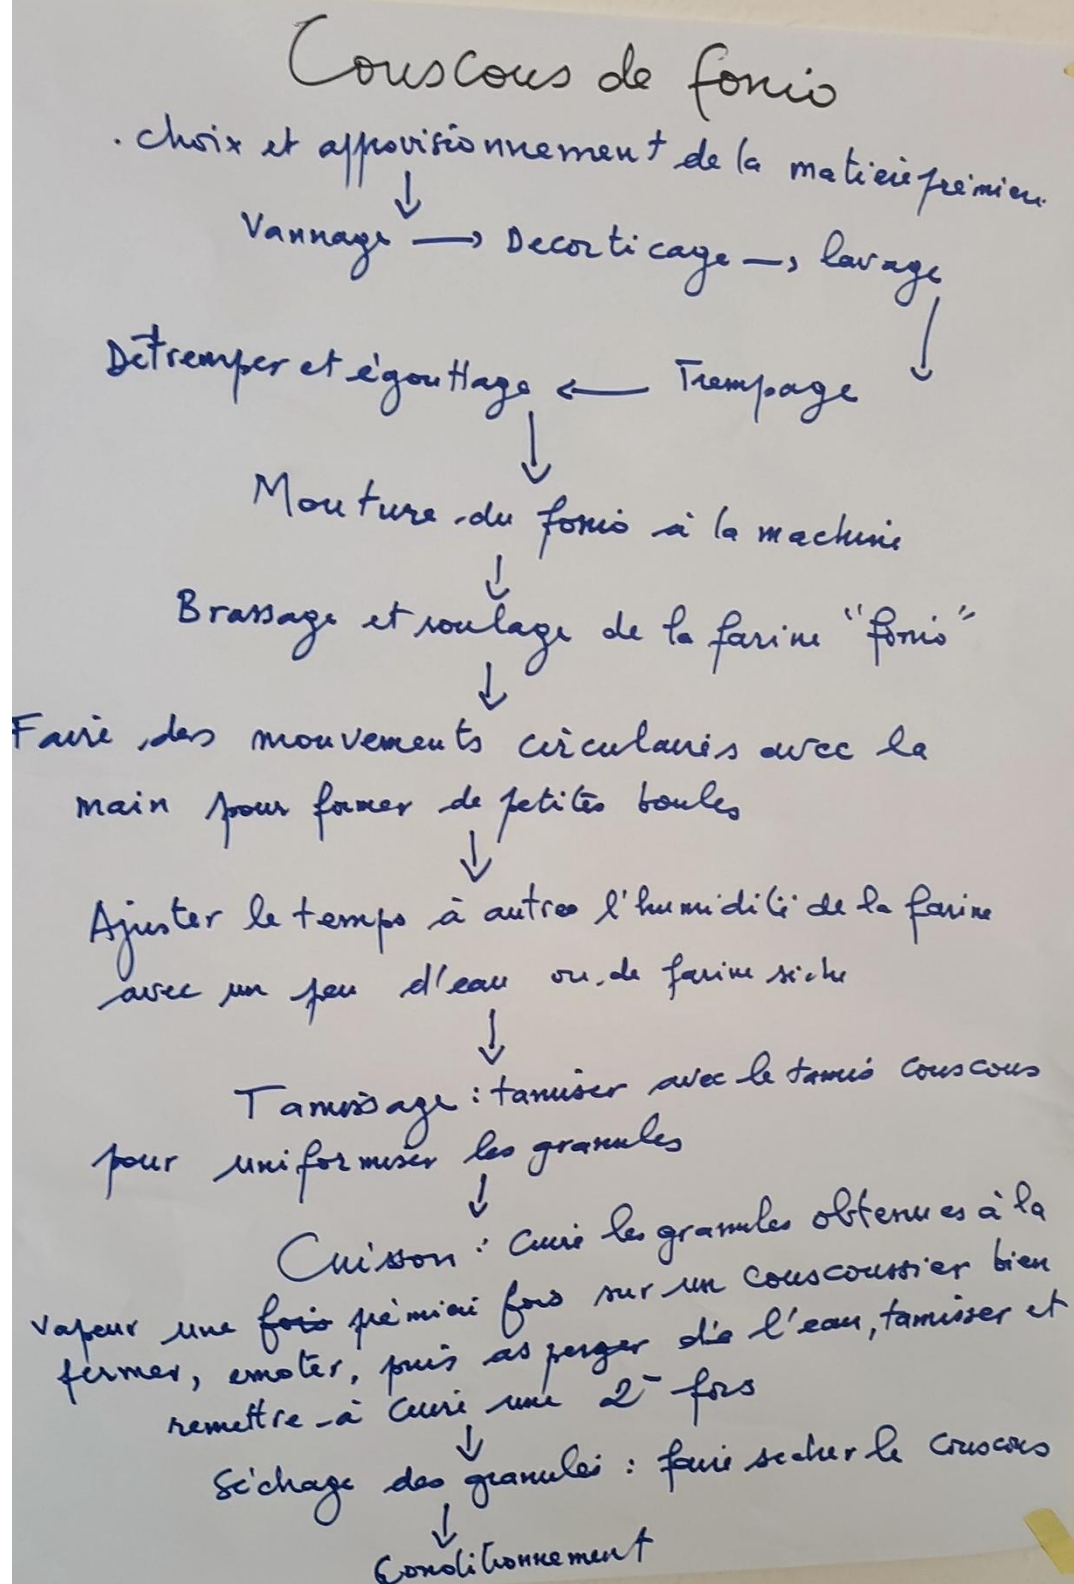 Couscous de fonio
. choix et approvisionnement de la matière première
↓
Vannage → Decorticage → lavage
↓
Détremper et égouttage ← Trempage
↓
Mouture du fonio à la machine
↓
Brassage et roulage de la farine "fonio"
↓
Faire des mouvements circulaires avec la
main pour former de petites boules
↓
Ajuster le temps à autres l'humidité de la farine
avec un peu d'eau ou de farine sèche
↓
Tamissage : tamiser avec le tamis couscous
pour uniformiser les granules
↓
Cuisson : Cuire les granules obtenues à la
vapeur une fois première fois sur un couscoussier bien
fermer, emoter, puis asperger de l'eau, tamisser et
remettre à cuire une 2e fois
↓
Séchage des granules : faire secher le couscous
↓
Conditionnement